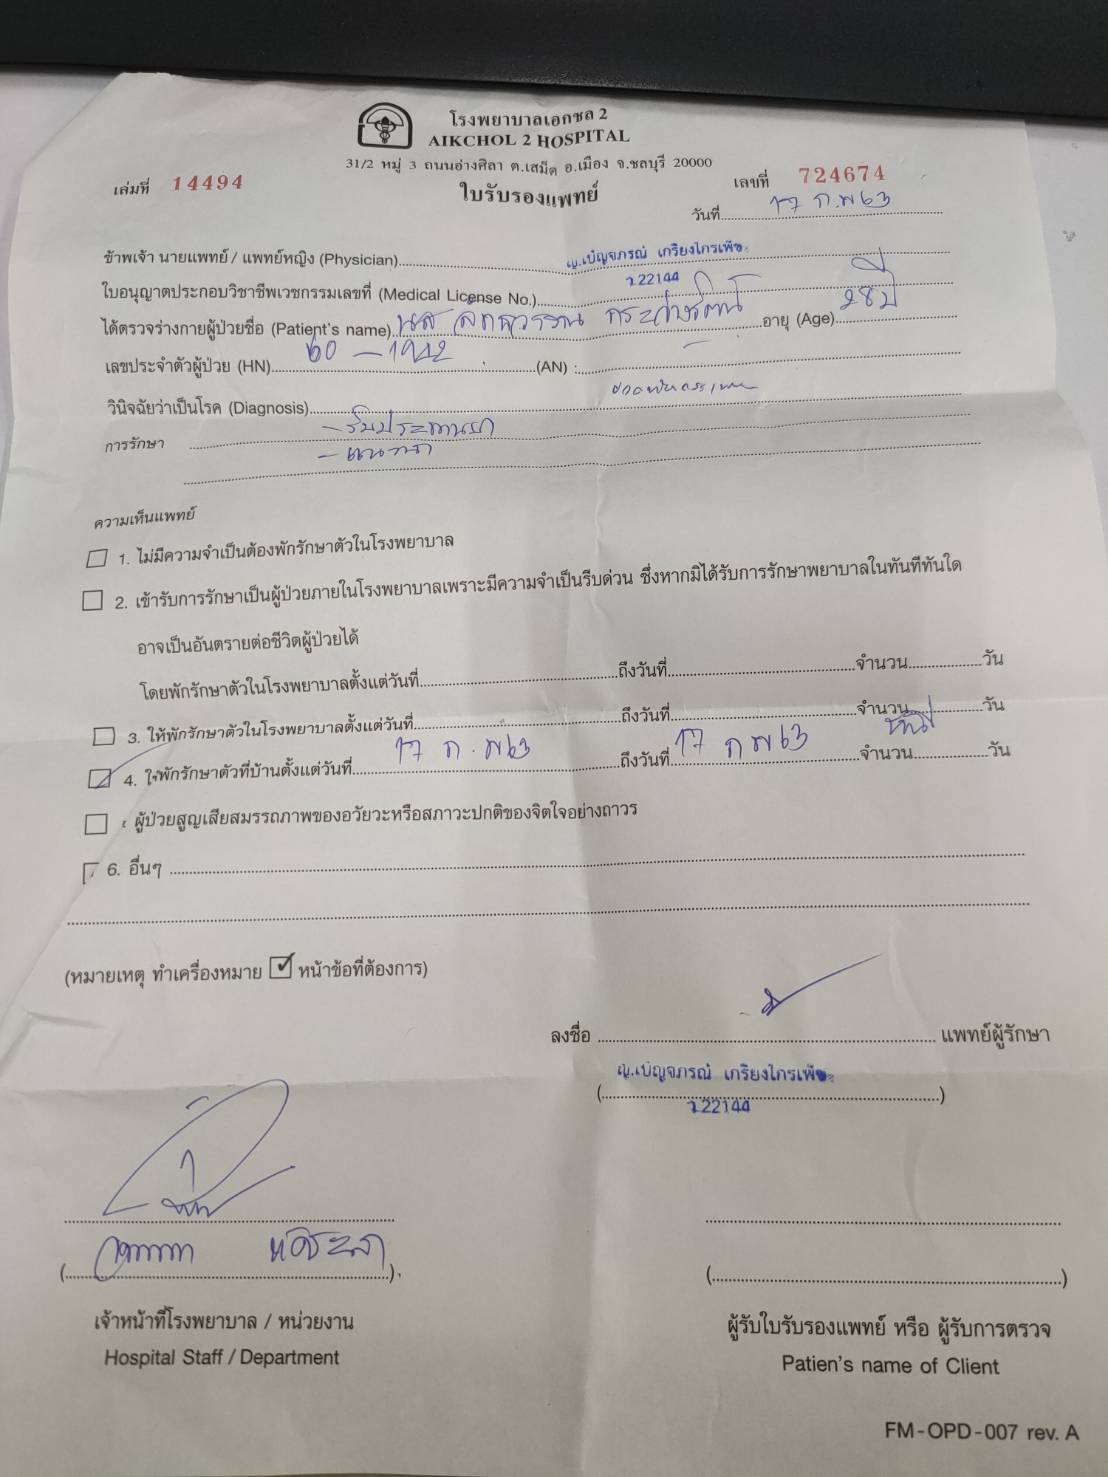 โรงพยาบาลเอกชล 2
AIKCHOL 2 HOSPITAL
31/2 หมู่ 3 ถนนอ่างศิลา ต.เสม็ด อ.เมือง จ.ชลบุรี 20000
เล่มที่ 14494 เลขที่ 724674
ใบรับรองแพทย์
วันที่ 17 ก.พ 63
ข้าพเจ้า นายแพทย์ / แพทย์หญิง (Physician) ญ.เบ็ญจภรณ์ เกรียงไกรเพ็ชร
ใบอนุญาตประกอบวิชาชีพเวชกรรมเลขที่ (Medical License No.) ว.22144
ได้ตรวจร่างกายผู้ป่วยชื่อ (Patient's name) นส อายุ (Age) 28 ปี
เลขประจำตัวผู้ป่วย (HN) 60 - 1942 (AN) : -
วินิจฉัยว่าเป็นโรค (Diagnosis)
การรักษา - รับประทานยา
ความเห็นแพทย์
1. ไม่มีความจำเป็นต้องพักรักษาตัวในโรงพยาบาล
2. เข้ารับการรักษาเป็นผู้ป่วยภายในโรงพยาบาลเพราะมีความจำเป็นรีบด่วน ซึ่งหากมิได้รับการรักษาพยาบาลในทันทีทันใด
อาจเป็นอันตรายต่อชีวิตผู้ป่วยได้
โดยพักรักษาตัวในโรงพยาบาลตั้งแต่วันที่ ถึงวันที่ จำนวน วัน
3. ให้พักรักษาตัวในโรงพยาบาลตั้งแต่วันที่ ถึงวันที่ จำนวน วัน
4. ให้พักรักษาตัวที่บ้านตั้งแต่วันที่ 17 ก.พ 63 ถึงวันที่ 17 ก พ 63 จำนวน วัน
ผู้ป่วยสูญเสียสมรรถภาพของอวัยวะหรือสภาวะปกติของจิตใจอย่างถาวร
6. อื่นๆ
(หมายเหตุ ทำเครื่องหมาย ☑ หน้าข้อที่ต้องการ)
ลงชื่อ แพทย์ผู้รักษา
(ญ.เบ็ญจภรณ์ เกรียงไกรเพ็ชร)
ว.22144
เจ้าหน้าที่โรงพยาบาล / หน่วยงาน
Hospital Staff / Department
ผู้รับใบรับรองแพทย์ หรือ ผู้รับการตรวจ
Patien's name of Client
FM-OPD-007 rev. A